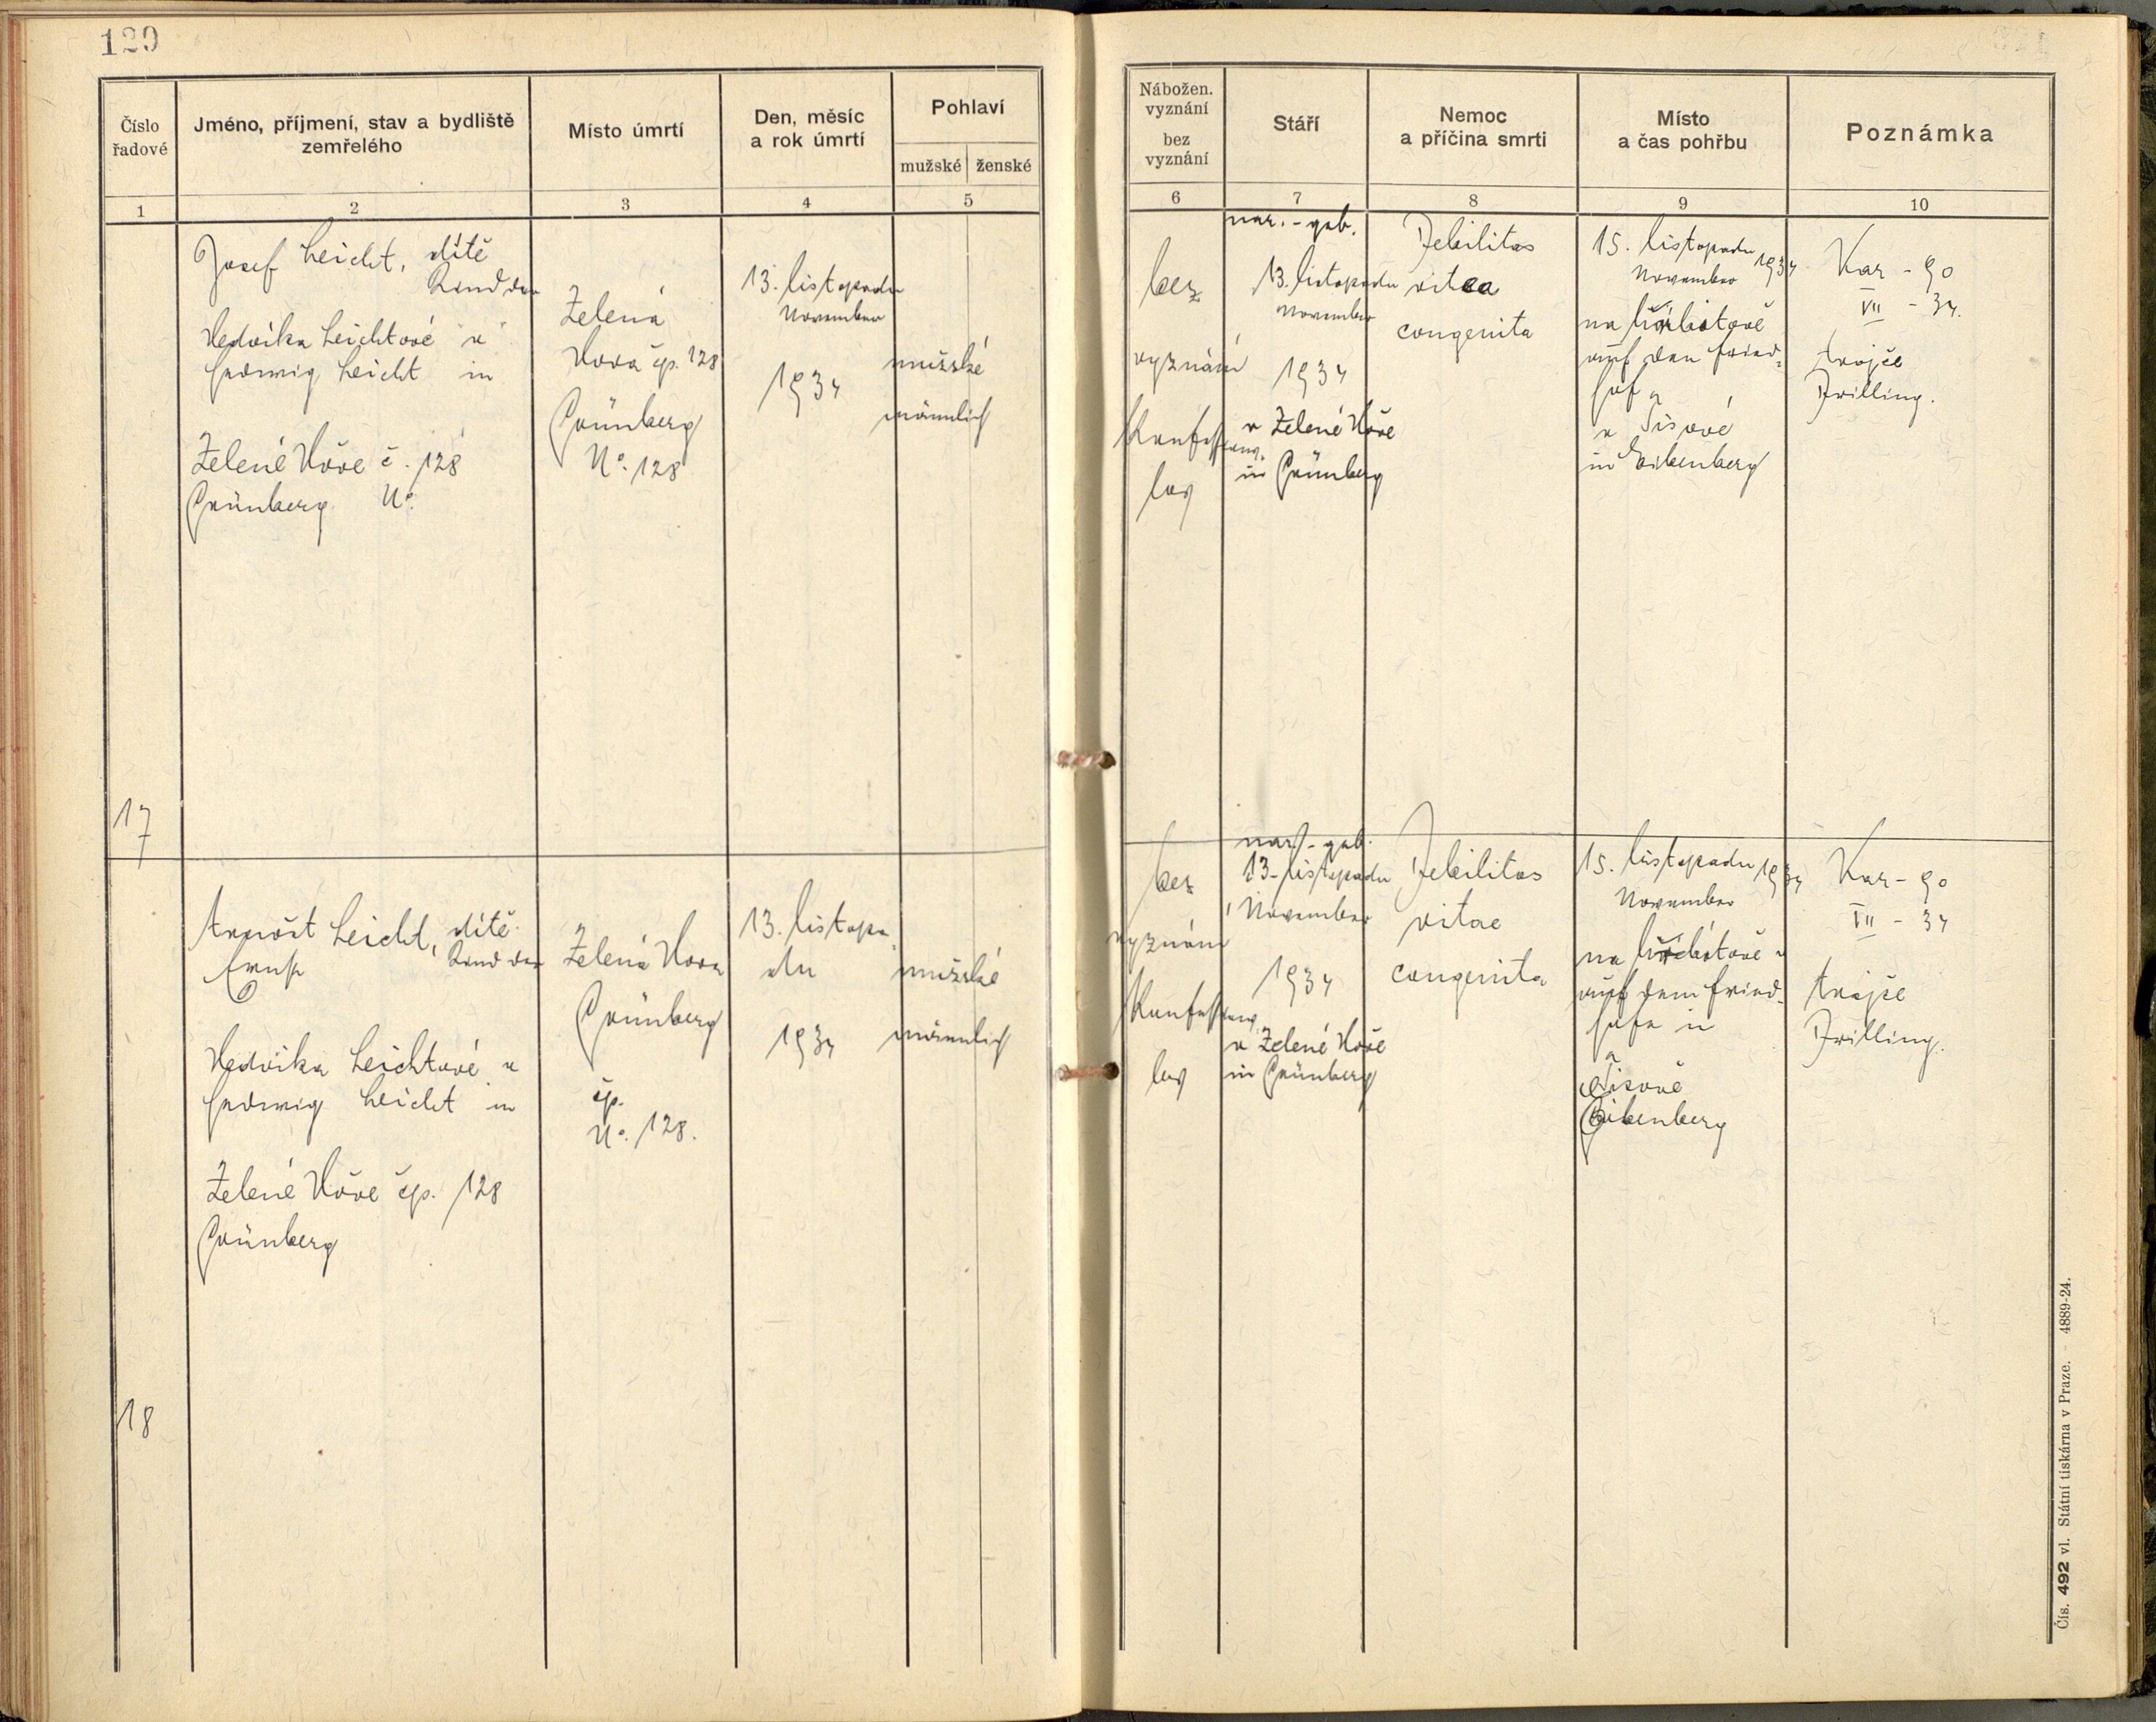 129
Číslo
řadové
Jméno, příjmení, stav a bydliště
zemřelého
Místo úmrtí
Den, měsíc
a rok úmrtí
Pohlaví
mužské
ženské
1
2
3
4
5
Nábožen.
vyznání
bez
vyznání
Stáří
Nemoc
a příčina smrti
Místo
a čas pohřbu
Poznámka
6
7
8
9
10
17
Josef Leicht, dítě
Kind der
Hedvika Leichtové v
Hedwig Leicht in
Zelené Hoře č. 128
Grünberg No.
Zelená
Hora čp. 128
Grünberg
No. 128
13. listopadu
November
1934
mužské
männlich
bez
vyznání
Konfessions
los
nar. - geb.
13. listopadu
November
1934
v Zelené Hoře
in Grünberg
Debilitas
vitea
congenita
15. listopadu 1934
November
na hřbitově
auf den Fried-
hof
v Tisové
in Eibenberg
Kar - 90
VII - 34.
trojče
Drilling.
18
Arnošt Leicht, dítě
Ernst Kind der
Hedvika Leichtové v
Hedwig Leicht in
Zelené Hoře čp. 128
Grünberg
Zelená Hora
Grünberg
čp.
No. 128.
13. listopa
du
1934
mužské
männlich
bez
vyznání
Konfessions
los
nar. - geb.
13. listopadu
November
1934
v Zelené Hoře
in Grünberg
Debilitas
vitae
congenita
15. listopadu 1934
November
na hřbitově
auf dem Fried-
hofe in
Tisové
Eibenberg
Kar - 90
VII - 34
trojče
Drilling.
Čís. 492 vl. Státní tiskárna v Praze. - 4889-24.